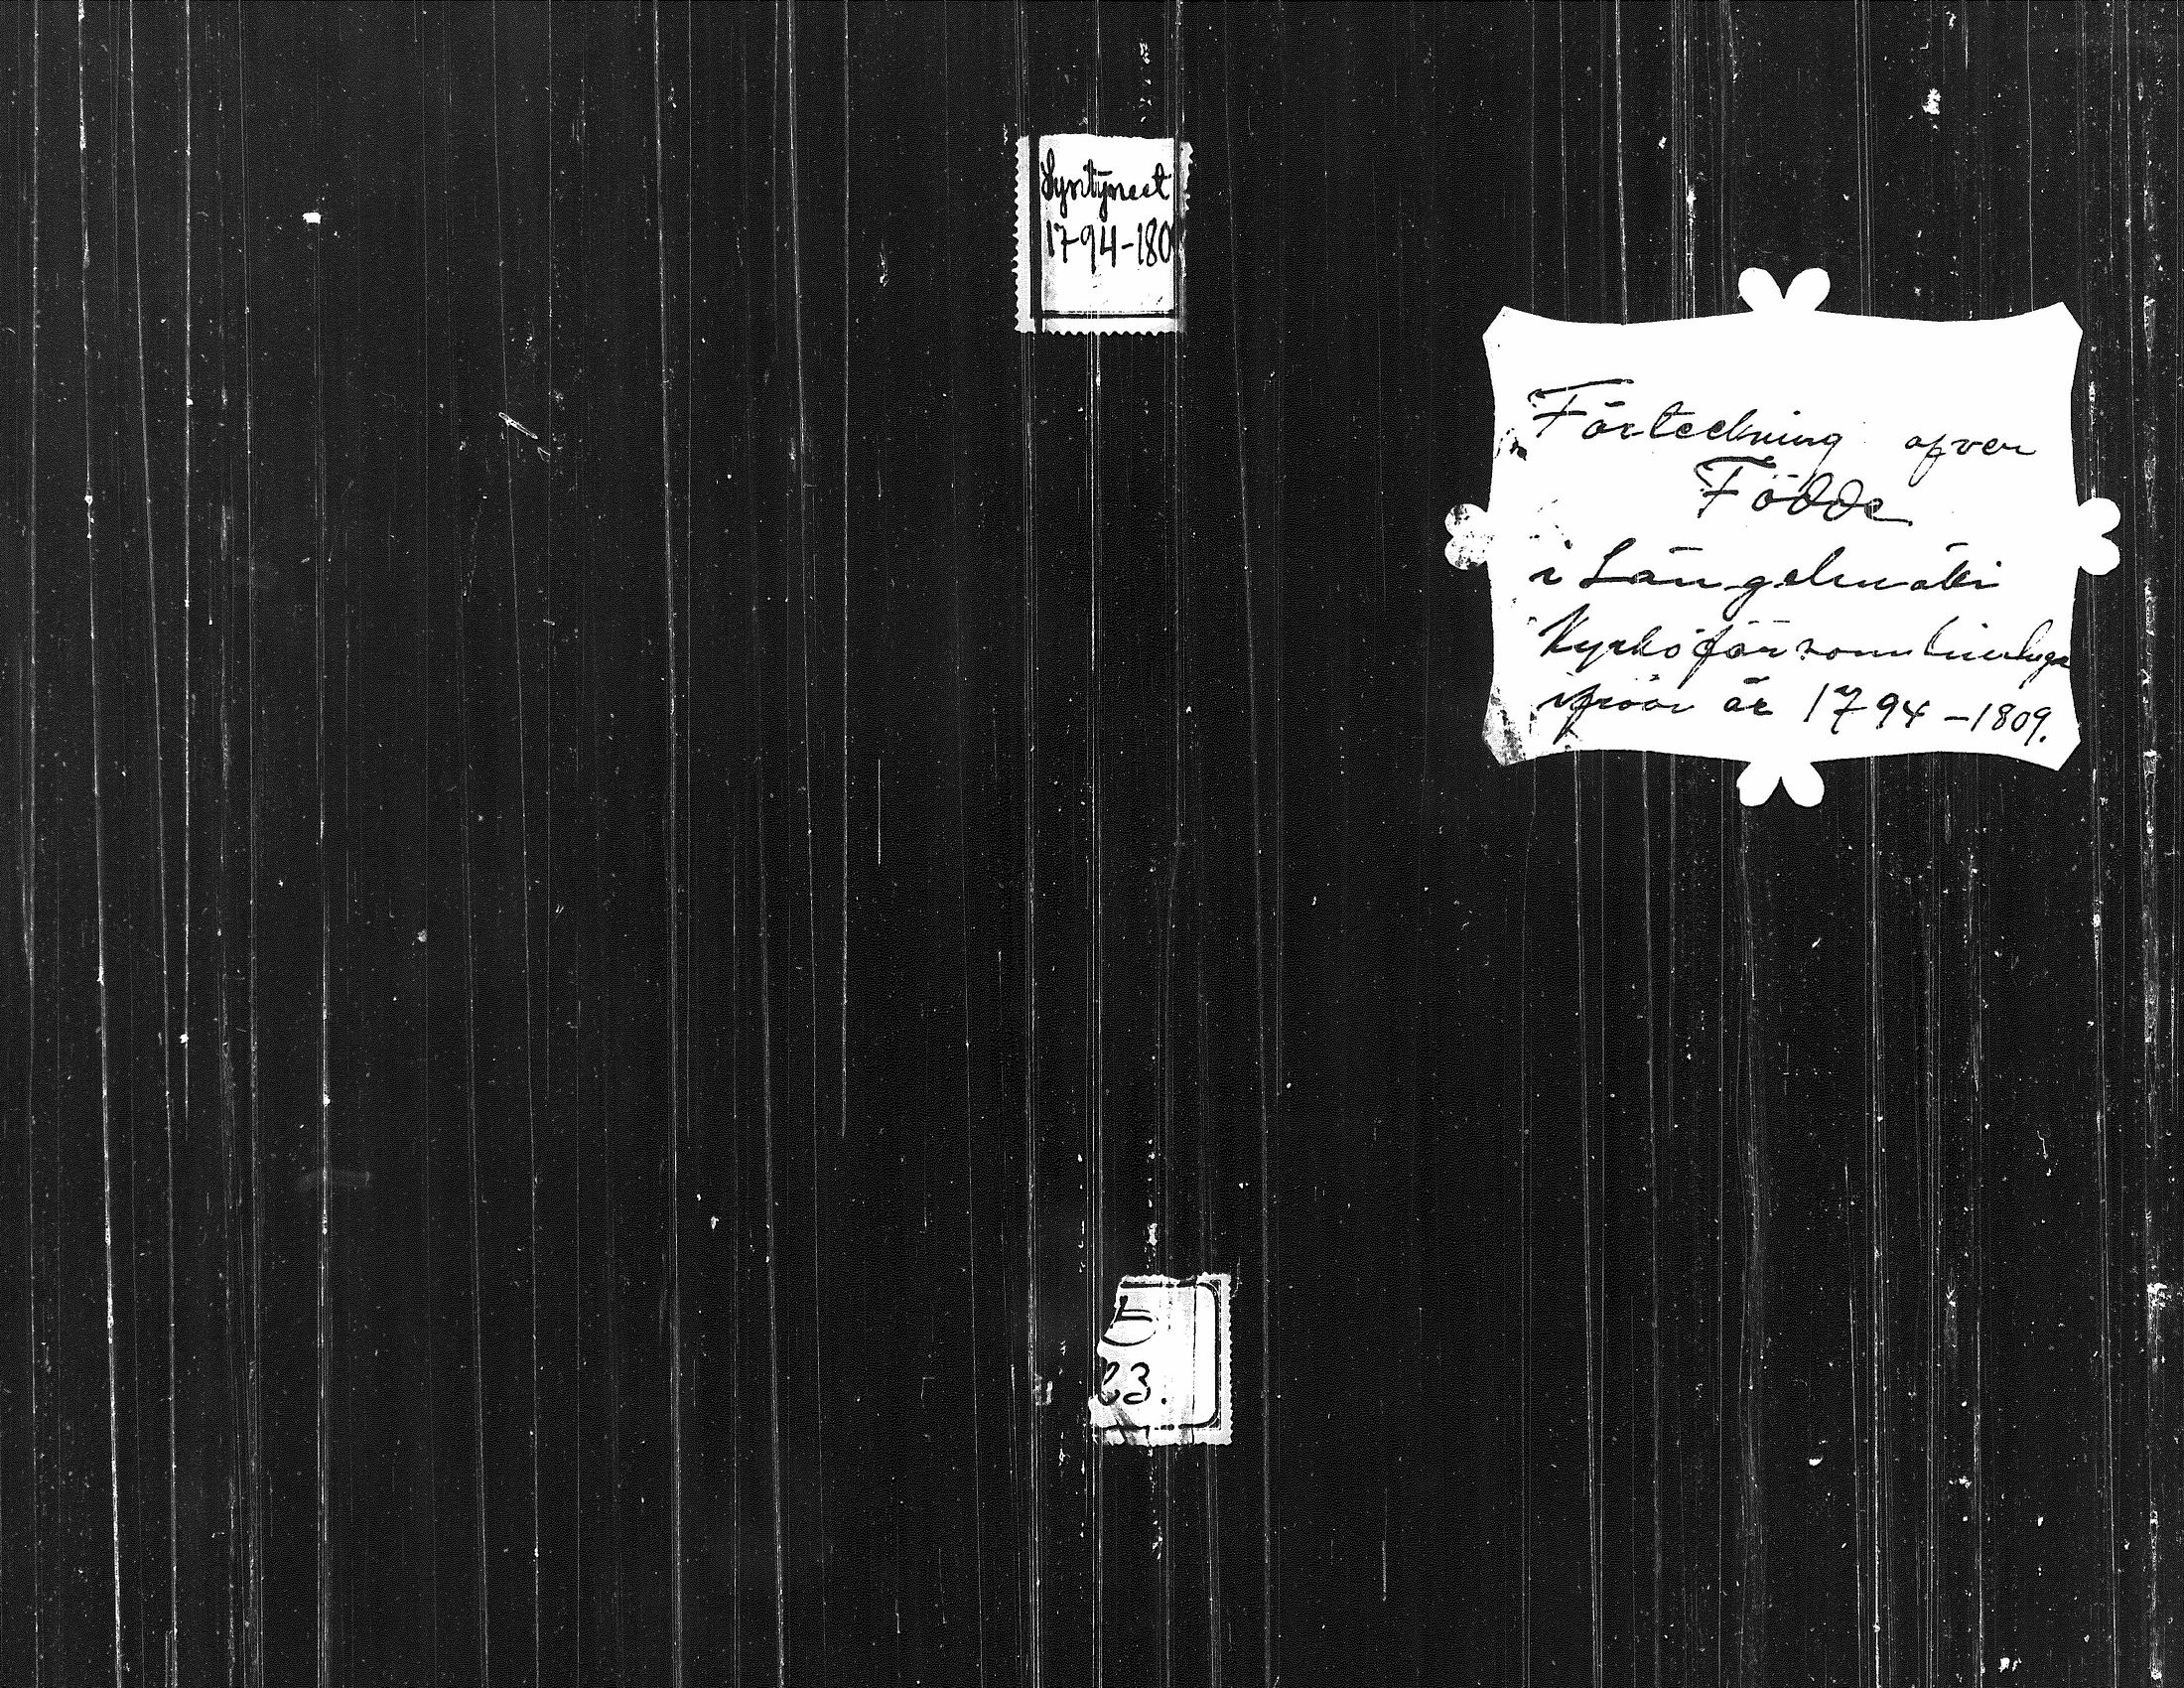 Syntyneet
1794-180
Förteckning öfver
Födde
i Längelmäki
Kyrkoförsamling
ifrån år 1794-1809.
23.